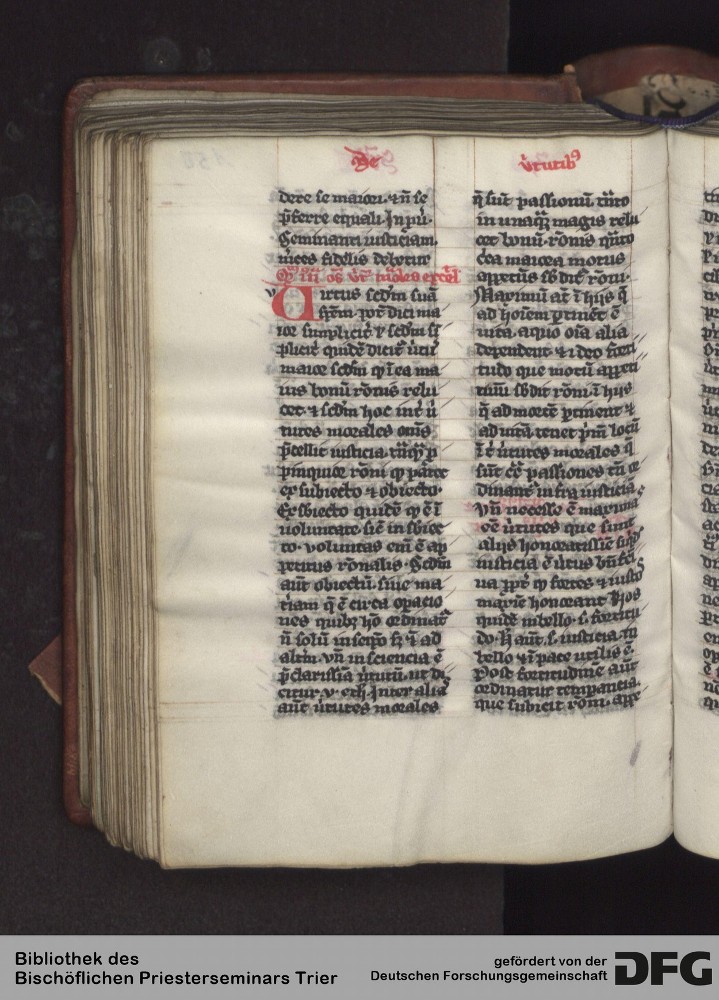 De
v̄tutib9
dere se maiori. ⁊ n̄ se
p̄ferre equali. In pu
Seminanti iusticiam.
m̄ces fidelis debetur
irtus scd̄m suā
maior scd̄m ꝙ ī ea ma
ius bonū rōnis relu
cet. ⁊ scd̄m hoc int̄ ū
tutes morales om̄s
p̄cellit iusticia.
pinquior rōni ꝙ patet
ex subiecto ⁊ obiecto.
Ex sbiecto quidē ꝙ ē ī
uoluntate sic̄ in sbiec
to. voluntas eni ē ap
petitus rōnalis. Scd̄m
aūt obiectū siue ma
t̄iam q̄ ē circa opatio
nes quibȝ hō ordinat̄
n̄ solū in seip̄o sȝ ⁊ ad
alt̄m. vn̄ in sciencia ē
p̄clarissīa ūtutū. ut di
citur. v. eth. Inter alias
aūt ūtutes morales
q̄ sūt passionū. tāto
in unaq̄ȝ magis relu
cet bonū rōnis q̄nto
c̄ca maiora motus
appetūs sbdit̄ rōni.
Maximū at̄ ī hijs q̄
ad hoīem p̄tinēt ē
uita. a quo oīa alia
dependent. ⁊ ideo forti
tudo que motū appeti
tiuū sbdit rōni. ī hijs
q̄ ad mortē p̄tinent ⁊
ad uitā. tenet p̄m locū
ūtutes morales q̄
sūt c̄c passiones tn̄ or
dinant̄ infra iusticiā.
Vn̄ necesse ē maxima
cē ūtutes que sunt
alijs honoratissīe siqd̄
iusticia ē ūtus bn̄fcī
ua ppt̄ ꝙ fortes ⁊ iustos
maxīe honorant Hos
quidē in bello. s. fortitu
do. H̄ aūt. s. iusticia. in
bello ⁊ ī pace utilis ē.
Post fortitudinē aūt
ordinatur temperancia.
que subicit rōni. appe
Bibliothek des
Bischöflichen Priesterseminars Trier
gefördert von der
Deutschen Forschungsgemeinschaft
DFG